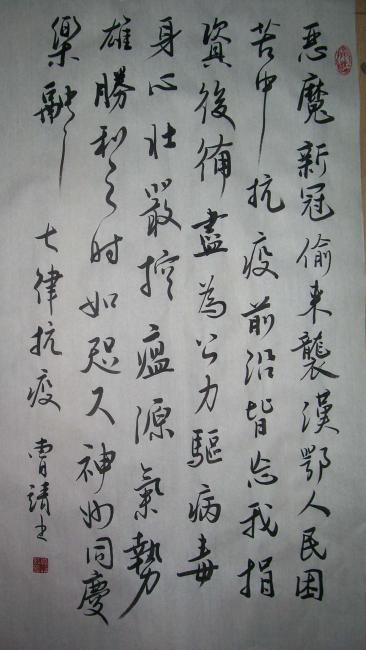 惡魔新冠偷来襲漢鄂人民困
苦中抗疫前沿皆忘我捐
資後備盡為公力驅病毒
身心壮嚴控瘟源氣勢
雄勝利之时如咫尺神州同慶
樂融々
七律抗疫 曹靖书